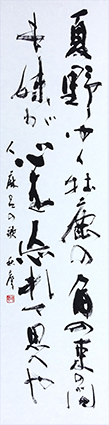 夏野ゆく牡鹿の角の束の間
も妹が心を忘れて思へや
人麻呂の歌